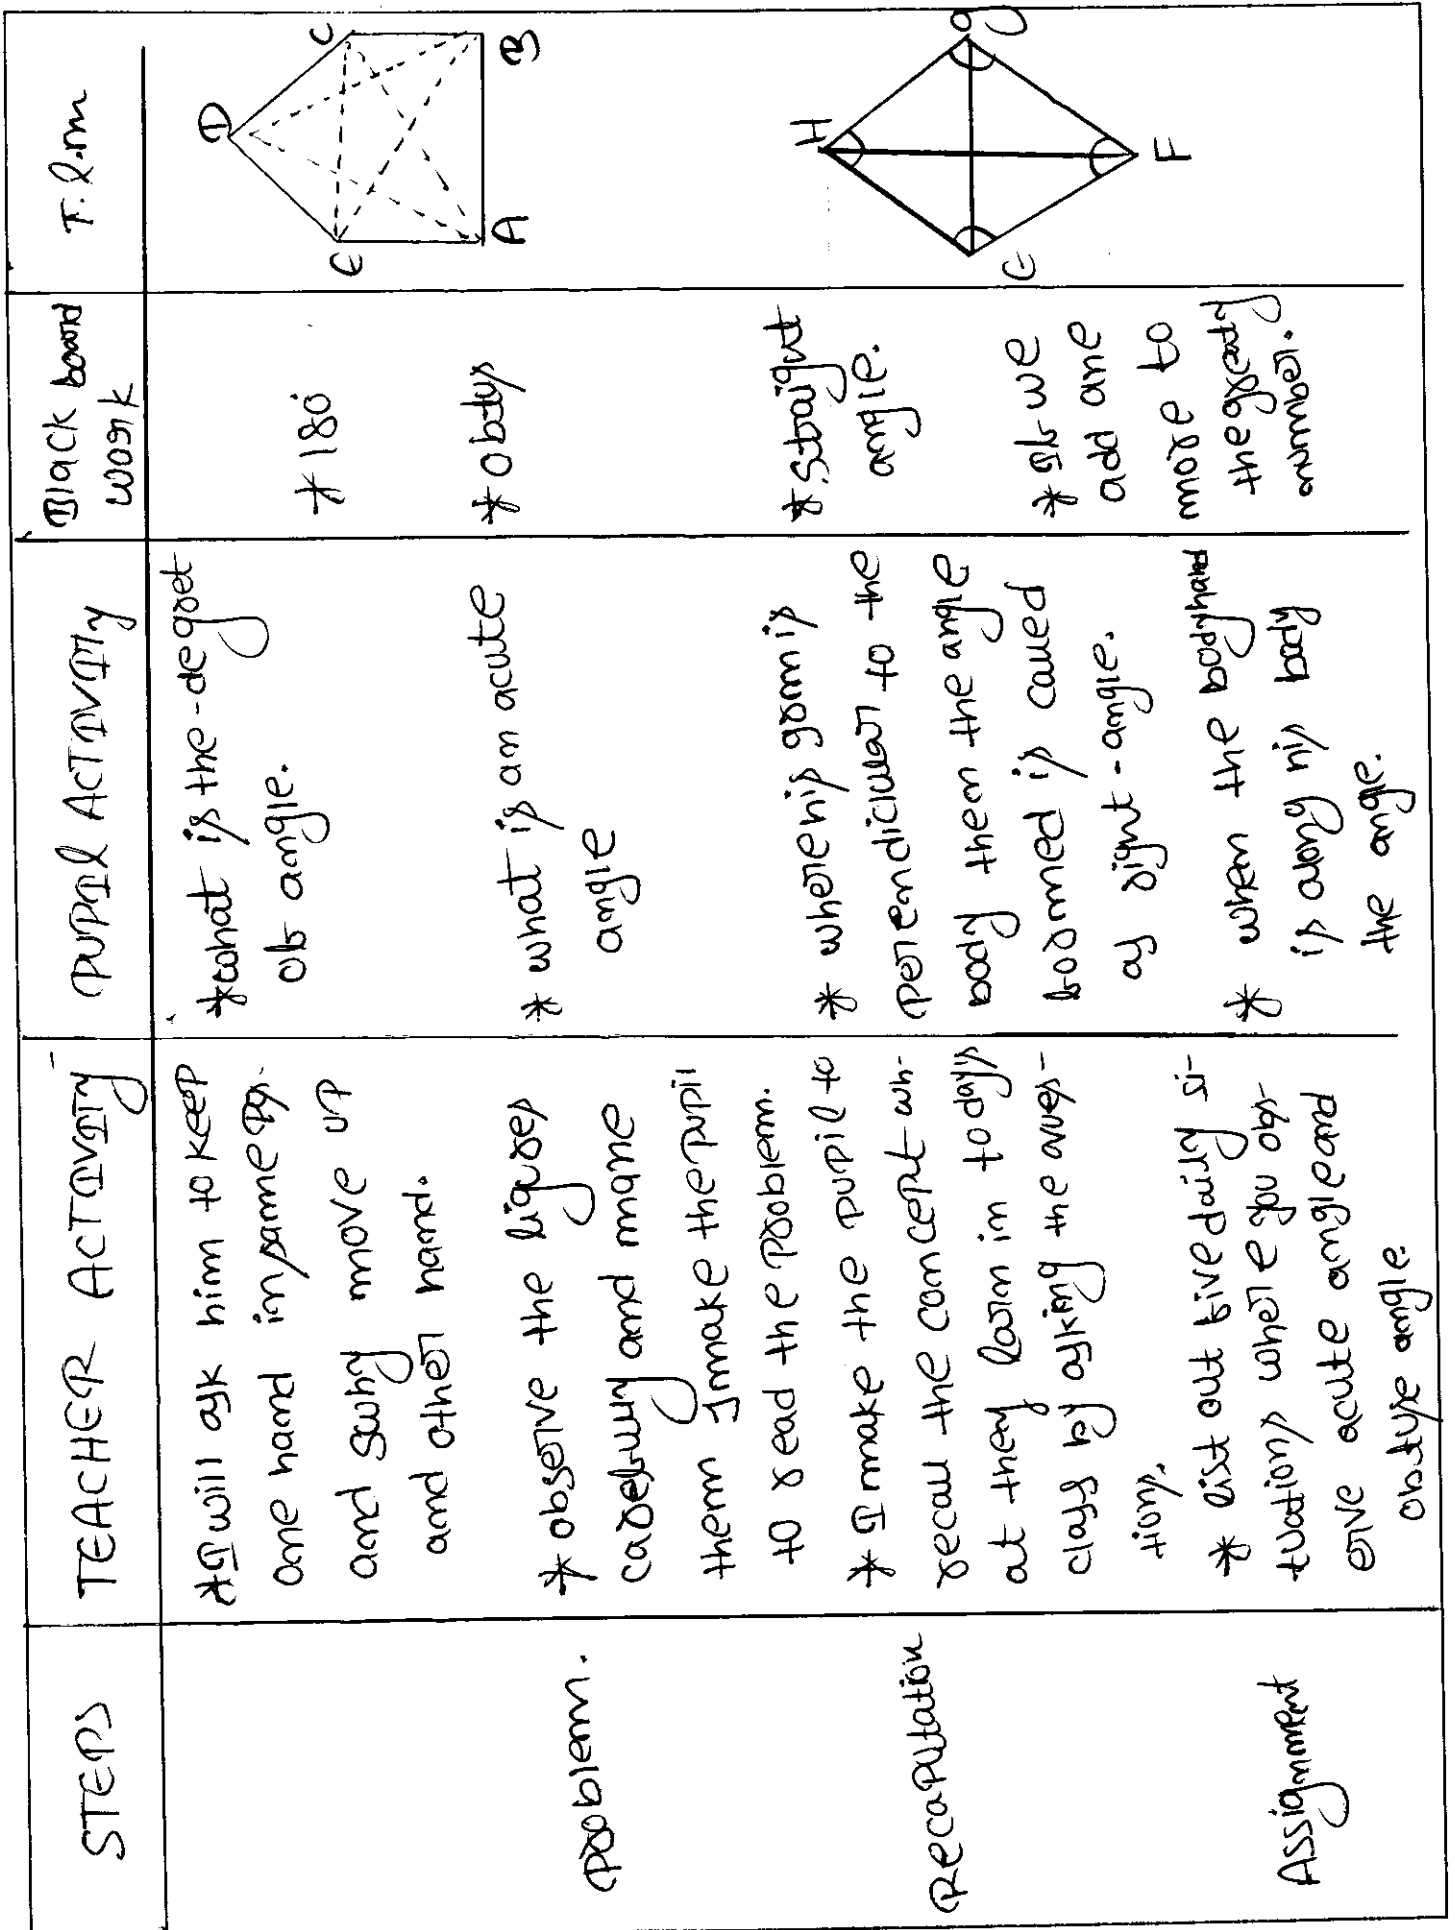 STEPS
TEACHER ACTIVITY
PUPIL ACTIVITY
Black board
work
T.l.m
*I will ask him to keep
one hand in same
and move up
and other hand.
*what is the degret
of angle.
*180
D
C
E
A
B
problem.
*observe the figures
carefully and mane
them I make the pupil
to read the problem.
*what is an acute
angle
*obtus
Recaputation
*I make the pupil to
recall the concept wh-
at they larn in today's
class by asking the ques-
tions.
*where his is
perendicluar to the
body them the angle
formed is called
as right-angle.
*Straight
angle.
H
G
E
F
Assignment
*list out five daily si-
tuations where you obs-
erve acute angle and
obtuse angle.
*when the body hand
is along his body
the angle.
*If we
add one
more to
the
number.